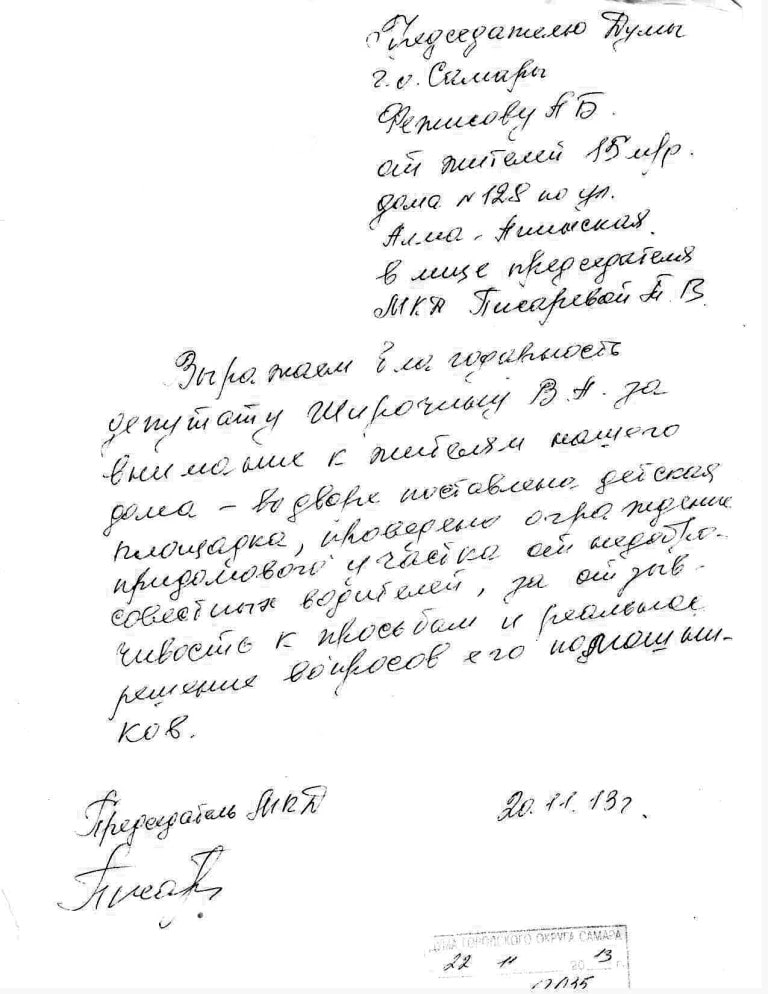 Председателю Думы
г.о. Самары
Фетисову А Б.
от жителей 15 мкр.
дома №128 по ул.
Алма-Атинская.
в лице председателя
МКД Писаревой Т. В.
Выражаем благодарность
депутату Широчину В. А. за
внимание к жителям нашего
дома - во дворе поставлена детская
площадка, проведено ограждение
придомового участка от недобро-
совестных водителей, за отзыв-
чивость к просьбам и реальное
решение вопросов его помощни-
ков.
Председатель МКД
20.11.13г.
ДУМА ГОРОДСКОГО ОКРУГА САМАРА
22 11 2013 г.